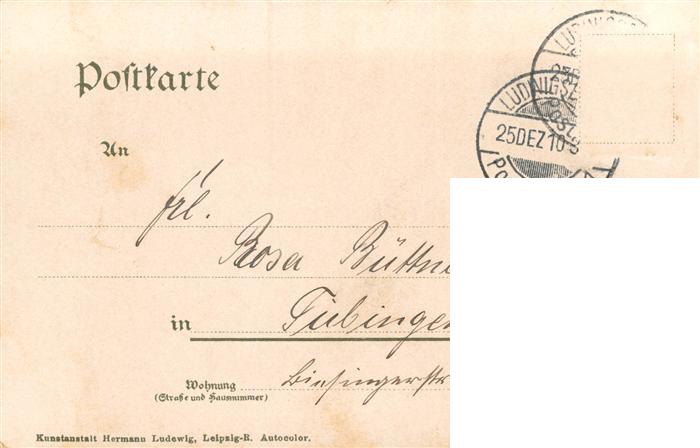 Postkarte
LUDWIGSZ
25DEZ10
An
Frl.
Rosa Büttne
in Tübingen
Wohnung
(Straße und Hausnummer)
Kunstanstalt Hermann Ludewig, Leipzig-R. Autocolor.